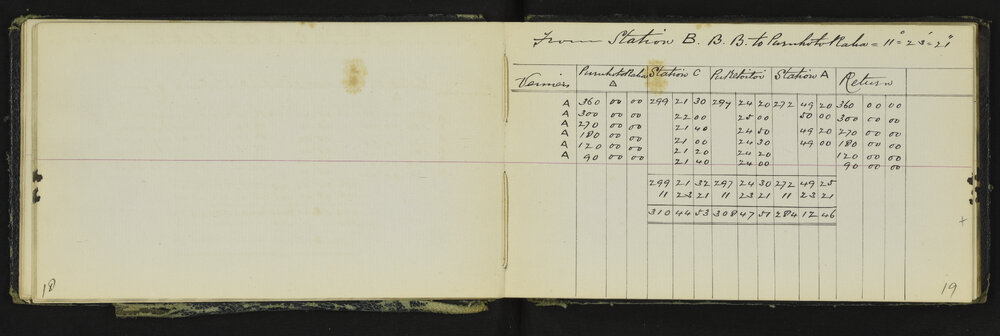 From Station B. B. B. to Puruhoto Raha = 11° = 23' = 21"
Verniers Puruhoto Raha △ Station C Station A Return
A 360 00 00 299 21 30 297 24 20 272 49 20 360 00 00
A 300 00 00 22 00 25 00 50 00 300 00 00
A 270 00 00 21 40 24 50 49 20 270 00 00
A 180 00 00 21 00 24 30 49 00 180 00 00
A 120 00 00 21 20 24 20 120 00 00
A 90 00 00 21 40 24 00 90 00 00
299 21 32 297 24 30 272 49 25
11 23 21 11 23 21 11 23 21
310 44 53 308 47 51 284 12 46
18
19